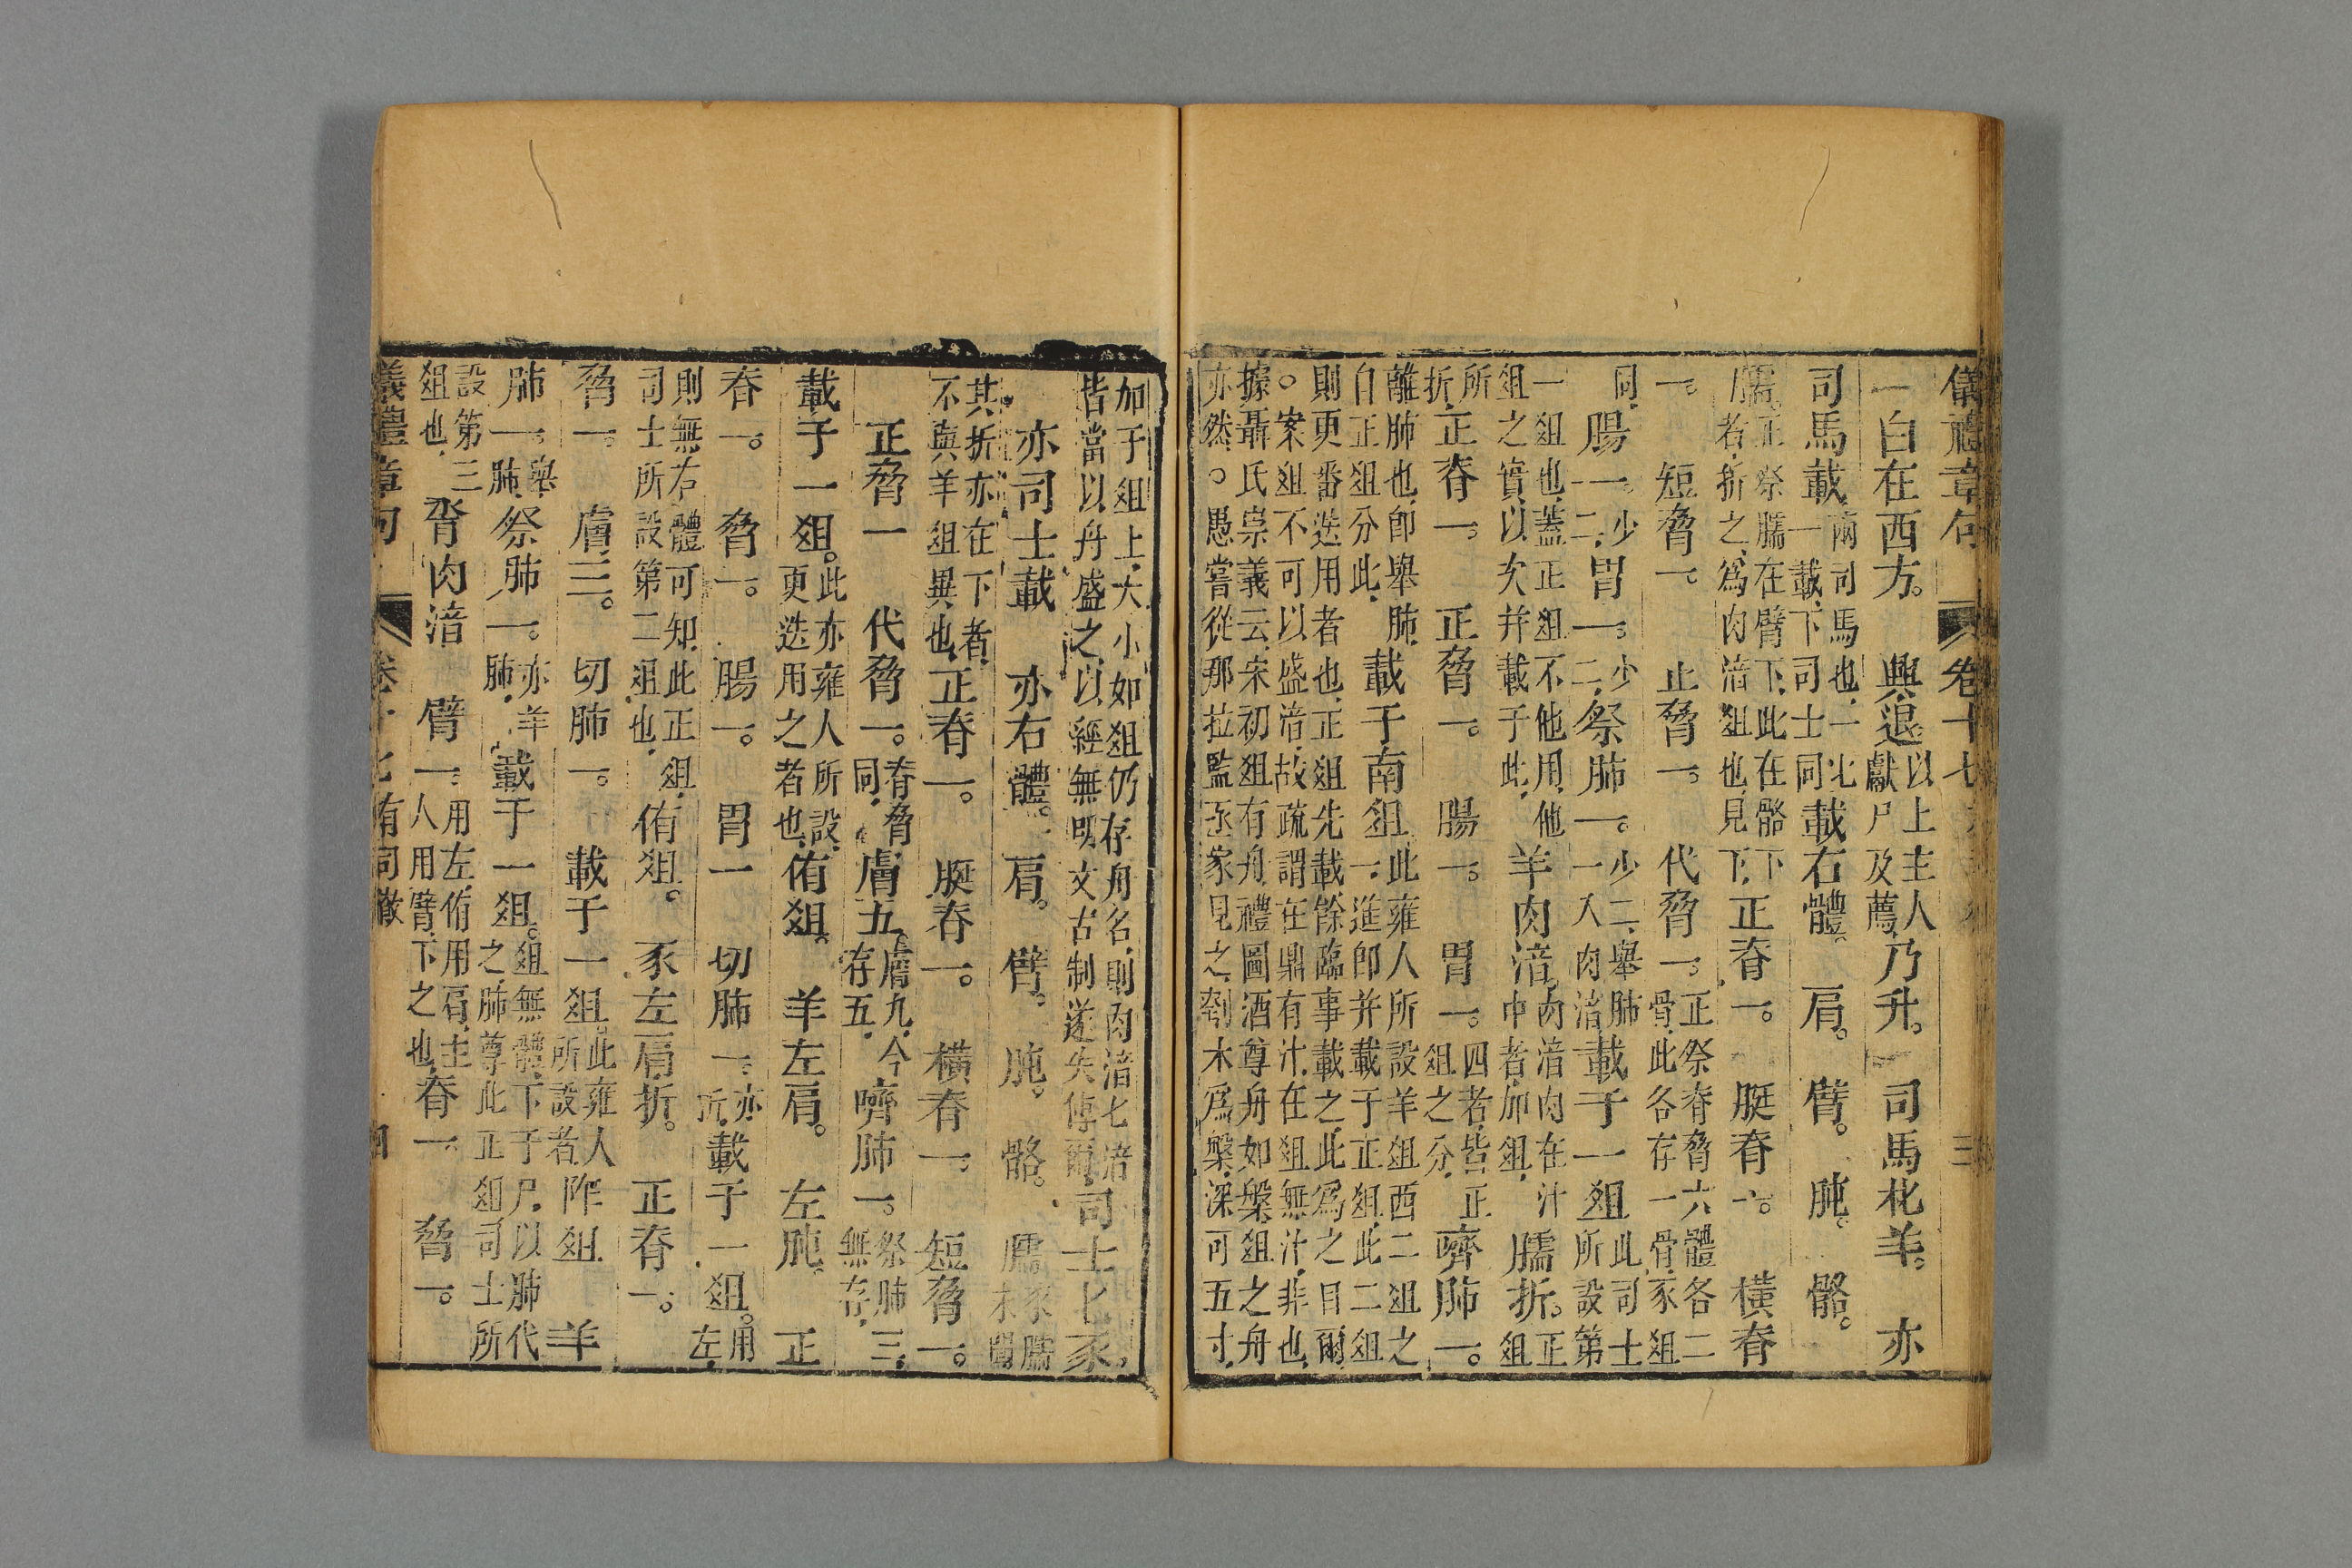 儀禮章句 卷十七 三
一白在西方。興退以上主人獻尸及薦乃升。司馬朼羊。亦
司馬載兩司馬也一匕一載下司士同載右體。肩。臂。肫。骼。
臑正祭臑在臂下此在骼下者折之為肉湆俎也見下正脊一。脡脊一。橫脊
一。短脅一。正脅一。代脅一。正祭脊脅六體各二骨此各存一骨豕俎
同腸一。少二胃一。少二祭肺一。少二舉肺一入肉湆載于一俎此司士所設第
一俎也蓋正俎不他用他俎之實以次并載于此羊肉湆肉湆肉在汁中者加俎臑折。正俎
所折正脊一。正脅一。腸一。胃一。四者皆正俎之分嚌肺一。
離肺也即舉肺自正俎分此載于南俎此雍人所設羊俎西二俎之一進即并載于正俎此二俎
則更番迭用者也正俎先載餘臨事載之此為之目爾
○案俎不可以盛湆故疏謂在鼎有汁在俎無汁非也
據聶氏崇義云宋初俎有舟禮圖酒尊舟如槃俎之舟
亦然○愚嘗從那拉監丞家見之刳木為槃深可五寸
加于俎上大小如俎仍存舟名則肉湆匕湆
皆當以舟盛之以經無明文古制遂失傳爾司士匕豕
亦司士載亦右體。肩。臂。肫。骼。臑豕臑未聞
其折亦在下者不與羊俎異也正脊一。脡脊一。橫脊一。短脅一。
正脅一代脅一。脊脅同膚五。膚九今存五嚌肺一。祭肺三無存
載于一俎。此亦雍人所設更迭用之者也侑俎。羊左肩。左肫。正
脊一。脅一。腸一。胃一切肺一。亦折載于一俎。用左
則無右體可知此正俎司士所設第二俎也侑俎。豕左肩折。正脊一。
脅一。膚三。切肺一。載于一俎。此雍人所設者阼俎羊
肺一。舉肺祭肺一。亦羊肺載于一俎。俎無體下于尸以肺代之肺尊此正俎司士所
設第三俎也胾肉湆臂一。用左侑用肩主人用臂下之也脊一。脅一。
儀禮章句 卷十七 有司徹 四